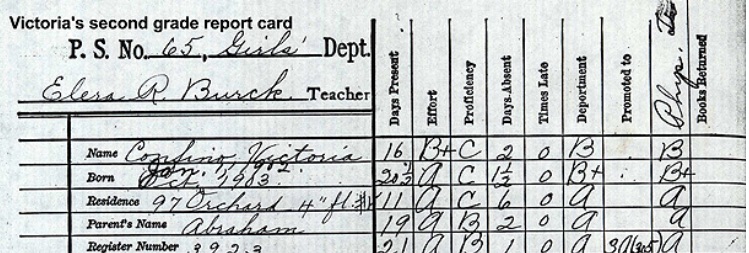 Victoria's second grade report card
P. S. No. 65, Girls' Dept.
Elera R. Burck Teacher
Days Present Effort Proficiency Days Absent Times Late Deportment Promoted to Phys. Books Returned
Name Confino, Victoria 16 B+ C 2 0 B B
Born Jan. 12. Oct. 1903 20½ A C 1½ 0 B+ B+
Residence 97 Orchard 4" fl. 11 A C 6 0 A A
Parent's Name Abraham 19 A B 2 0 A A
Register Number 3923 21 A B 1 0 A 3A(305) A